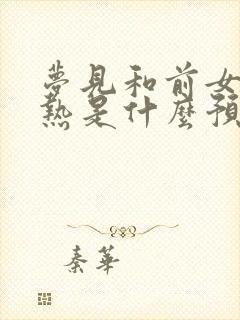 夢見和前女
熱是什麼預
秦華